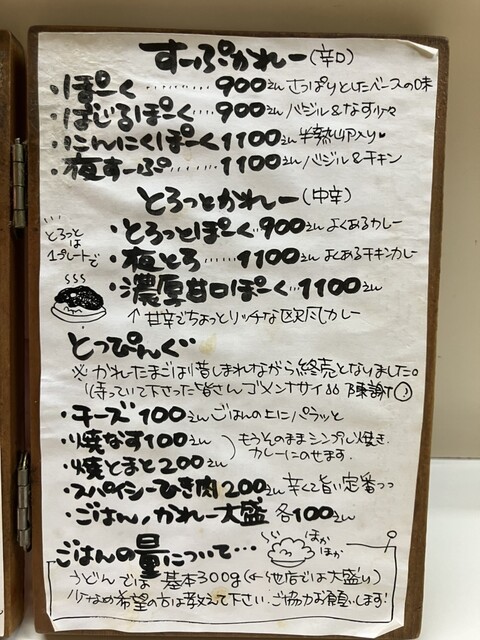 すーぷかれー(辛口)
・ぽーく……… 900えん さっぱりとしたベースの味
・ばじるぽーく… 900えん バジル&なす少々
・にんにくぽーく1100えん 半熟卵入り♥
・夜すーぷ…… 1100えん バジル&チキン
とろっとかれー(中辛)
とろっと
は
1プレートで
・とろっとぽーく… 900えん よくあるカレー
・夜とろ…… 1100えん よくあるチキンカレー
・濃厚甘口ぽーく… 1100えん
↑甘辛でちょっとリッチな欧風カレー
とっぴんぐ
※かれーたまごは惜しまれながら終売となりました。
(待っていて下さった皆さんゴメンナサイ
・チーズ100えん ごはんの上にパラッと
・焼なす100えん
・焼とまと200えん
もうそのままシンプル焼き。
カレーにのせます。
・スパイシーひき肉200えん 辛くて旨い定番っっ
・ごはん、かれー大盛 各100えん
ごはんの量について…
ほか
ほか
うどんでは 基本300g(←他店では大盛り)
少なめ希望の方は教えて下さい。ご協力お願いします!